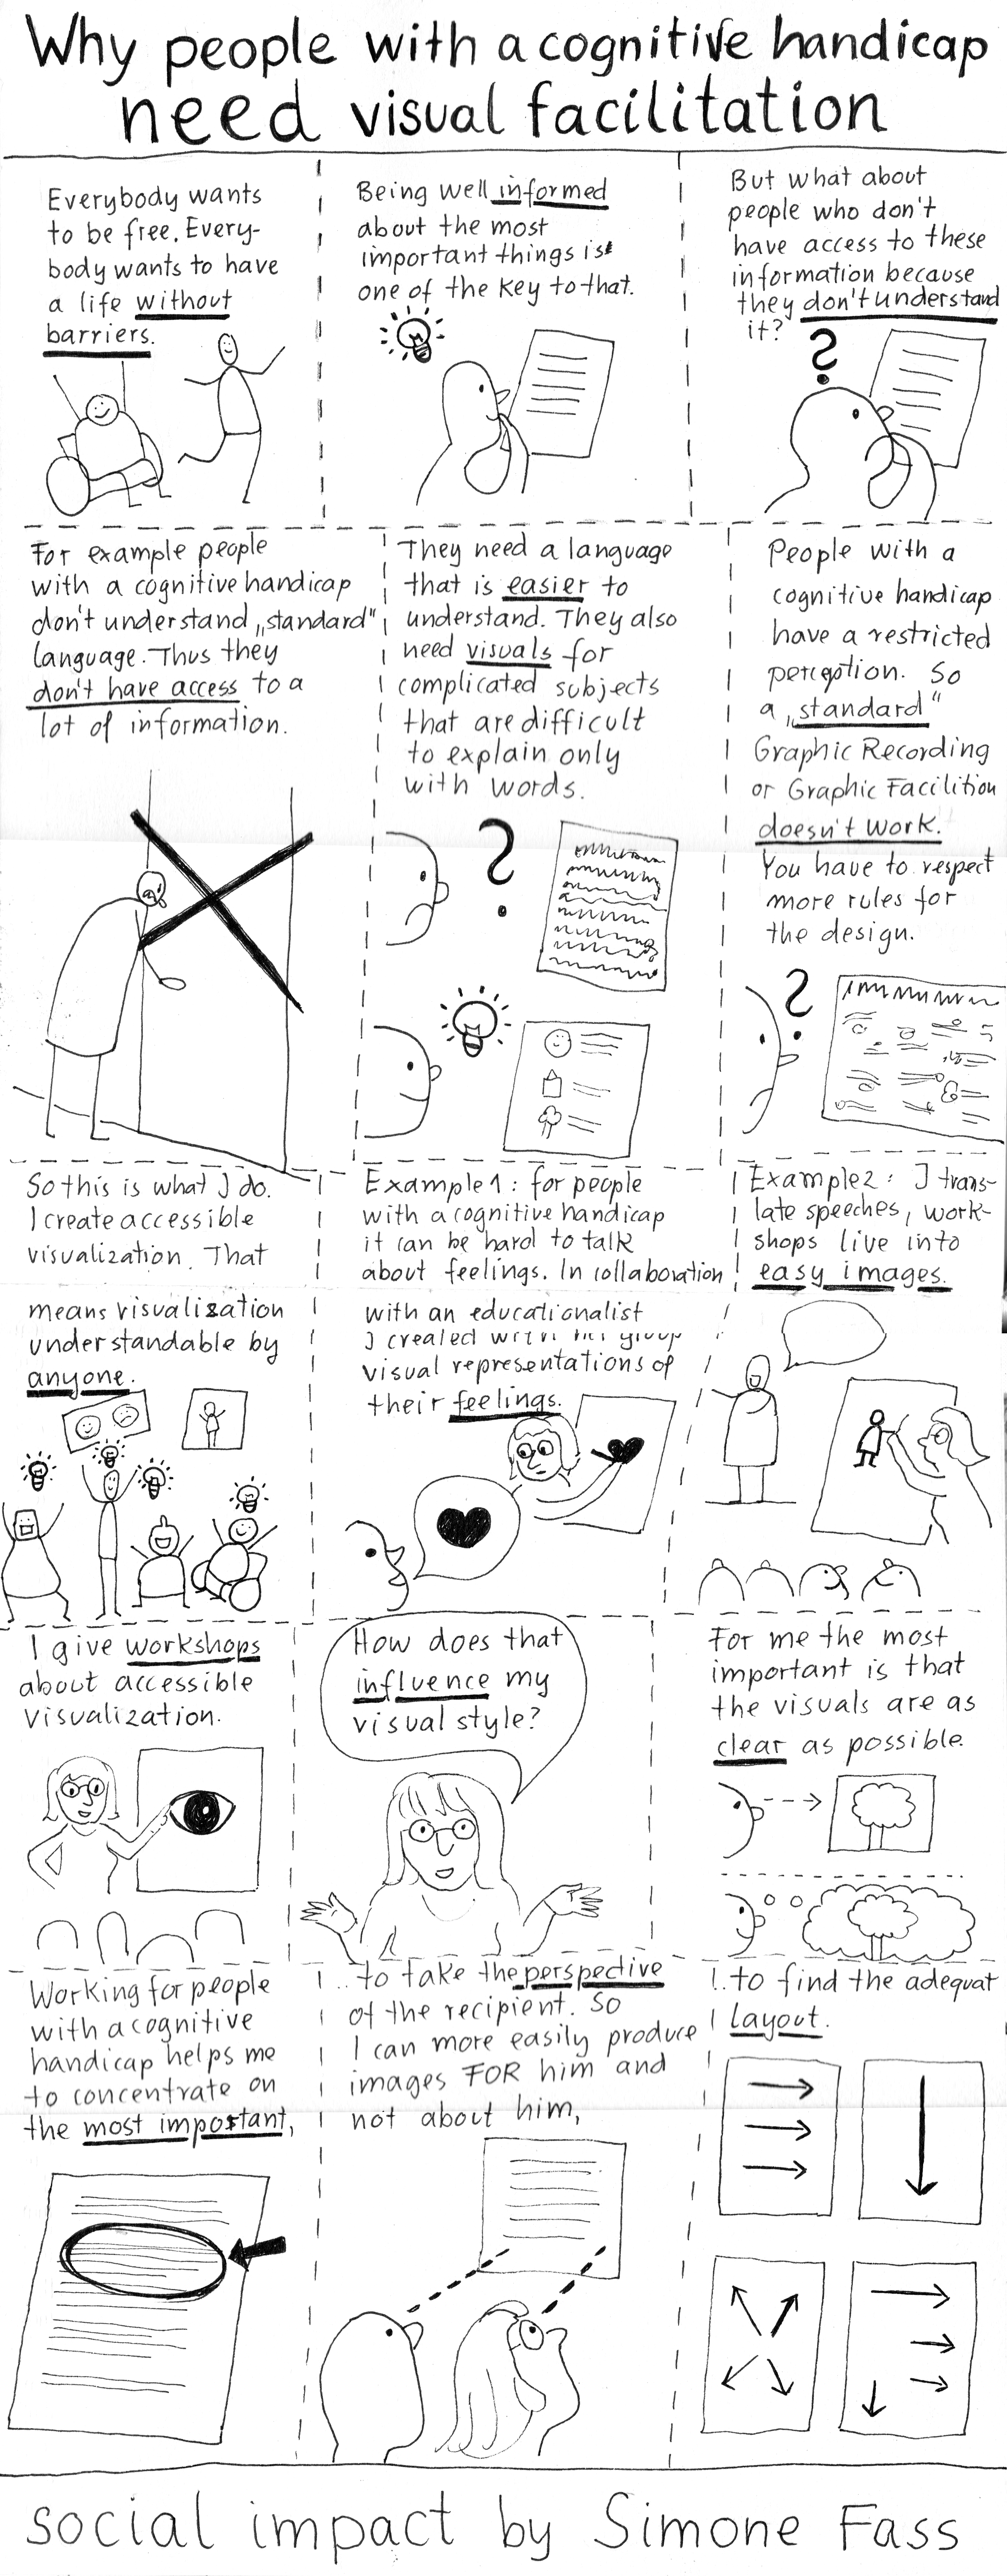 Why people with a cognitive handicap
need visual facilitation
Everybody wants
to be free. Every-
body wants to have
a life without
barriers.
Being well informed
about the most
important things is
one of the key to that.
But what about
people who don't
have access to these
information because
they don't understand
it?
?
For example people
with a cognitive handicap
don't understand „standard"
language. Thus they
don't have access to a
lot of information.
They need a language
that is easier to
understand. They also
need visuals for
complicated subjects
that are difficult
to explain only
with words.
?
People with a
cognitive handicap
have a restricted
perception. So
a „standard"
Graphic Recording
or Graphic Facilition
doesn't work.
You have to respect
more rules for
the design.
?
So this is what I do.
I create accessible
visualization. That
means visualization
understandable by
anyone.
Example 1: for people
with a cognitive handicap
it can be hard to talk
about feelings. In collaboration
with an educationalist
I created with
visual representations of
their feelings.
Example 2: I trans-
late speeches, work-
shops live into
easy images.
I give workshops
about accessible
visualization.
How does that
influence my
visual style?
For me the most
important is that
the visuals are as
clear as possible.
Working for people
with a cognitive
handicap helps me
to concentrate on
the most important,
...to take the perspective
of the recipient. So
I can more easily produce
images FOR him and
not about him,
...to find the adequat
layout.
social impact by Simone Fass